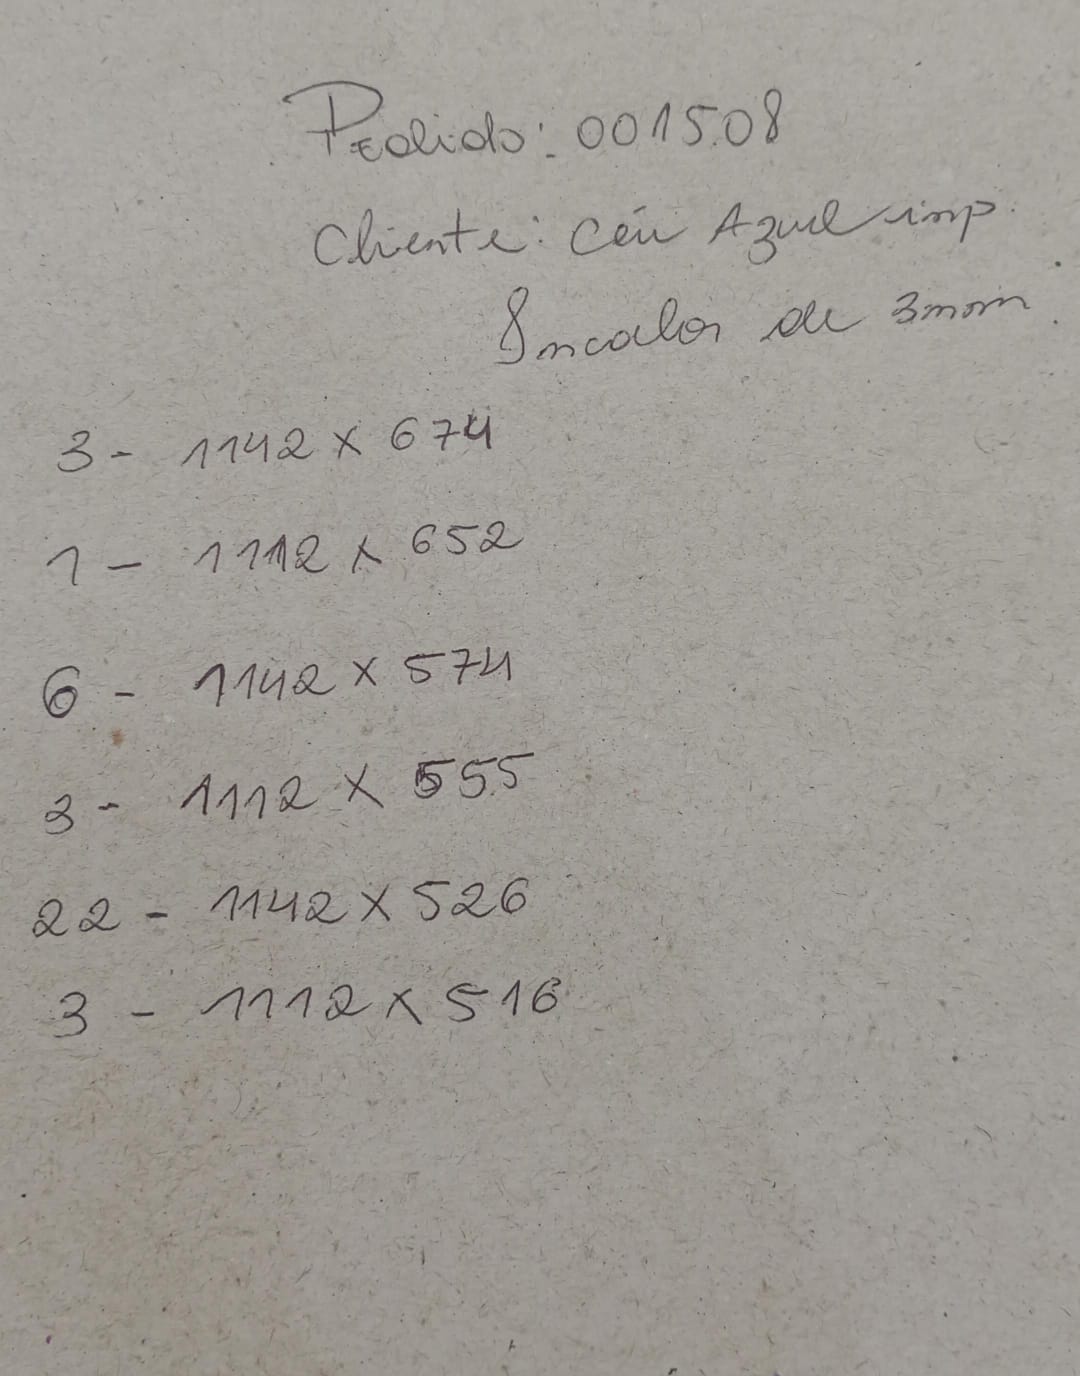 Pedido: 001508
Cliente: Céu Azul imp.
Incolor de 3mm.
3- 1142 x 674
1 - 1112 x 652
6 - 1142 x 574
3- 1112 x 555
22 - 1142 x 526
3 - 1112 x 516